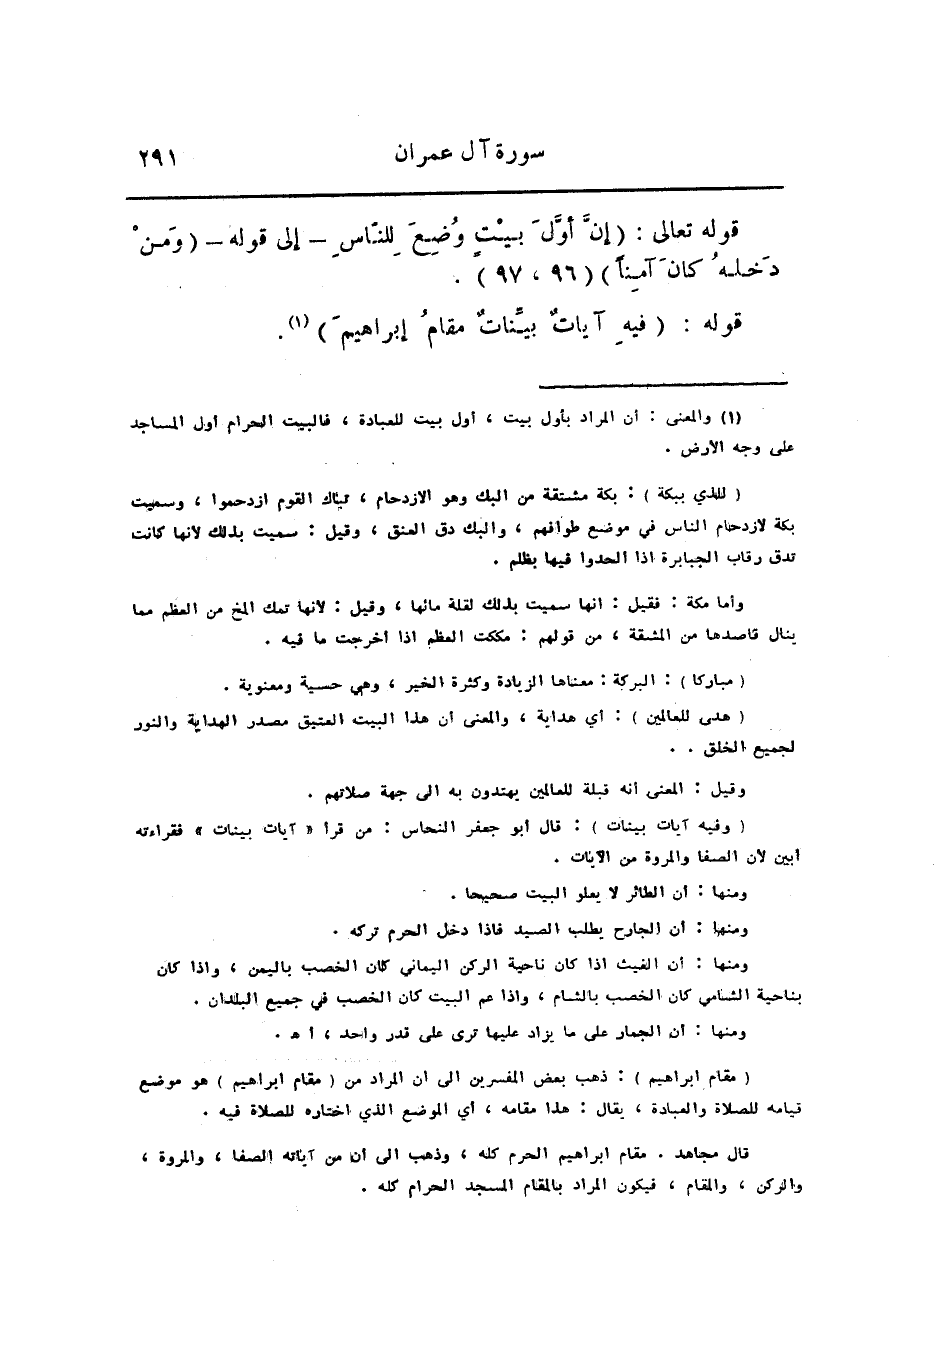 سورة آل عمران
٢٩١
قوله تعالى : ( إنَّ أوَّلَ بيتٍ وُضِعَ لِلنّاسِ – إلى قوله – ( وَمَنْ
دَخلهُ كانَ آمِناً ) ( ٩٦ ، ٩٧ ) .
قوله : ( فيهِ آياتٌ بيِّناتٌ مقامُ إبراهيمَ ) (١).
(١) والمعنى : أن المراد بأول بيت ، أول بيت للعبادة ، فالبيت الحرام أول المساجد
على وجه الارض .
( للذي ببكة ) : بكة مشتقة من البك وهو الازدحام ، تباك القوم ازدحموا ، وسميت
بكة لازدحام الناس في موضع طوافهم ، والبك دق العنق ، وقيل : سميت بذلك لانها كانت
تدق رقاب الجبابرة اذا الحدوا فيها بظلم .
وأما مكة : فقيل : انها سميت بذلك لقلة مائها ، وقيل : لانها تمك المخ من العظم مما
ينال قاصدها من المشقة ، من قولهم : مككت العظم اذا أخرجت ما فيه .
( مباركا ) : البركة : معناها الزيادة وكثرة الخير ، وهي حسية ومعنوية .
( هدى للعالمين ) : أي هداية ، والمعنى أن هذا البيت العتيق مصدر الهداية والنور
لجميع الخلق . .
وقيل : المعنى أنه قبلة للعالمين يهتدون به الى جهة صلاتهم .
( وفيه آيات بينات ) : قال أبو جعفر النحاس : من قرأ « آيات بينات » فقراءته
أبين لان الصفا والمروة من الآيات .
ومنها : أن الطائر لا يعلو البيت صحيحا .
ومنها : أن الجارح يطلب الصيد فاذا دخل الحرم تركه .
ومنها : أن الغيث اذا كان ناحية الركن اليماني كان الخصب باليمن ، واذا كان
بناحية الشامي كان الخصب بالشام ، واذا عم البيت كان الخصب في جميع البلدان .
ومنها : أن الجمار على ما يزاد عليها ترى على قدر واحد ، أ هـ .
( مقام ابراهيم ) : ذهب بعض المفسرين الى ان المراد من ( مقام ابراهيم ) هو موضع
قيامه للصلاة والعبادة ، يقال : هذا مقامه ، أي الموضع الذي اختاره للصلاة فيه .
قال مجاهد . مقام ابراهيم الحرم كله ، وذهب الى أن من آياته الصفا ، والمروة ،
والركن ، والمقام ، فيكون المراد بالمقام المسجد الحرام كله .